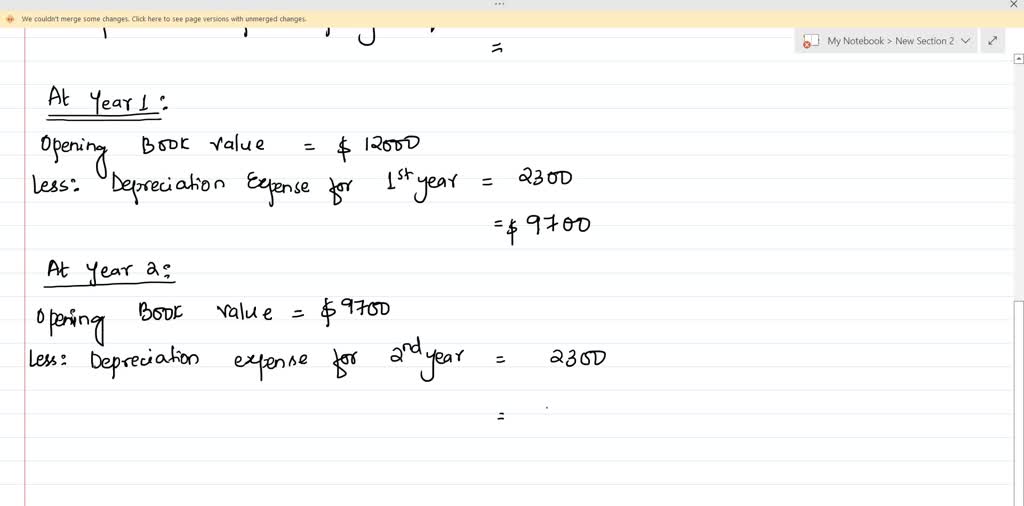 We couldn't merge some changes. Click here to see page versions with unmerged changes.
My Notebook > New Section 2
=
At Year 1:
Opening Book value = $ 12000
Less: Depreciation Expense for 1st year = 2300
= $ 9700
At Year 2:
Opening Book value = $ 9700
Less: Depreciation expense for 2nd year = 2300
=